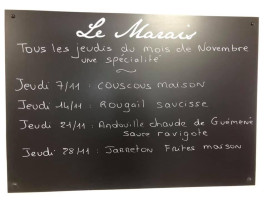 Le Marais
Tous les jeudis du mois de Novembre
une spécialité
Jeudi 7/11 : couscous maison
Jeudi 14/11 : Rougail saucisse
Jeudi 21/11 : Andouille chaude de Guémené
sauce ravigote
Jeudi 28/11 : Jarreton Frites maison